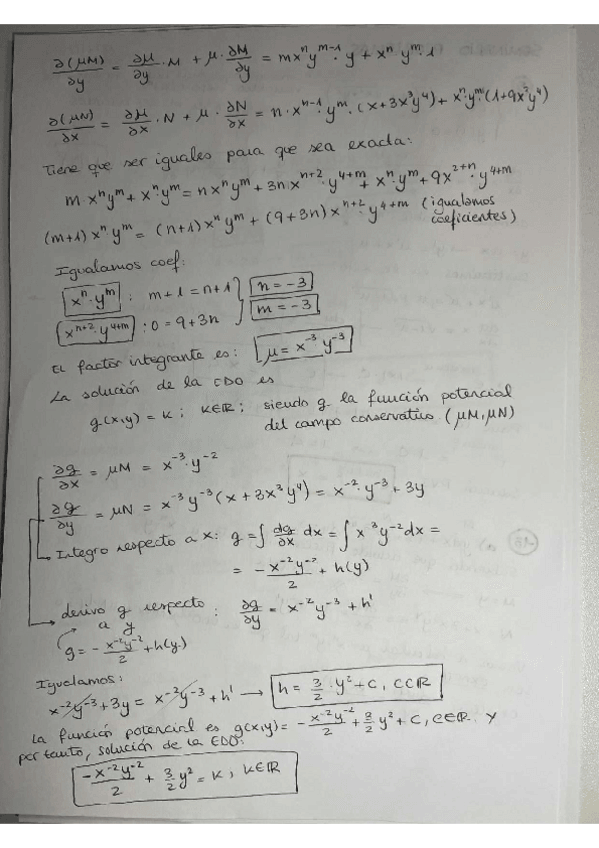 ∂(μM)/∂y = ∂μ/∂y · M + μ · ∂M/∂y = mxⁿy^(m-1) · y + xⁿ · y^m · 1
∂(μN)/∂x = ∂μ/∂x · N + μ · ∂N/∂x = n · x^(n-1) · y^m · (x + 3x³y⁴) + xⁿ · y^m · (1 + 9x²y⁴)
Tiene que ser iguales para que sea exacta:
m · xⁿy^m + xⁿ · y^m = nxⁿy^m + 3n · x^(n+2) · y^(4+m) + xⁿ · y^m + 9x^(2+n) · y^(4+m)
(m+1) xⁿ · y^m = (n+1) xⁿ y^m + (9+3n) x^(n+2) · y^(4+m) (igualamos coeficientes)
Igualamos coef:
xⁿ · y^m : m+1 = n+1 } n = -3
x^(n+2) · y^(4+m) : 0 = 9+3n } m = -3
El factor integrante es: μ = x⁻³ y⁻³
La solución de la EDO es
g(x,y) = K ; K∈ℝ ; siendo g la función potencial
del campo conservativo (μM, μN)
∂g/∂x = μM = x⁻³ · y⁻²
∂g/∂y = μN = x⁻³ y⁻³ (x + 3x³y⁴) = x⁻² · y⁻³ + 3y
Integro respecto a x: g = ∫ ∂g/∂x dx = ∫ x⁻³ y⁻² dx =
= - x⁻²y⁻²/2 + h(y)
derivo g respecto a y : ∂g/∂y = x⁻² y⁻³ + h'
g = - x⁻²y⁻²/2 + h(y)
Igualamos:
x⁻²y⁻³ + 3y = x⁻²y⁻³ + h' → h = 3/2 · y² + C, C∈ℝ
La función potencial es g(x,y) = - x⁻²y⁻²/2 + 3/2 y² + C, C∈ℝ. Y
por tanto, solución de la EDO:
-x⁻²y⁻²/2 + 3/2 y² = K, K∈ℝ